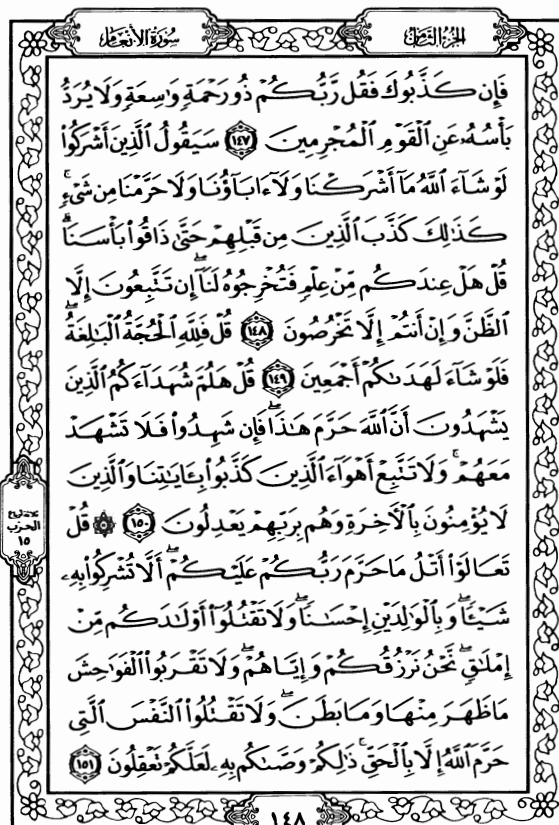 سورة الأنعام
الجزء الثامن
فَإِن كَذَّبُوكَ فَقُل رَّبُّكُمْ ذُو رَحْمَةٍ وَٰسِعَةٍ وَلَا يُرَدُّ
بَأْسُهُۥ عَنِ ٱلْقَوْمِ ٱلْمُجْرِمِينَ ١٤٧ سَيَقُولُ ٱلَّذِينَ أَشْرَكُوا۟
لَوْ شَآءَ ٱللَّهُ مَآ أَشْرَكْنَا وَلَآ ءَابَآؤُنَا وَلَا حَرَّمْنَا مِن شَىْءٍۚ
كَذَٰلِكَ كَذَّبَ ٱلَّذِينَ مِن قَبْلِهِمْ حَتَّىٰ ذَاقُوا۟ بَأْسَنَاۗ
قُلْ هَلْ عِندَكُم مِّنْ عِلْمٍ فَتُخْرِجُوهُ لَنَآۖ إِن تَتَّبِعُونَ إِلَّا
ٱلظَّنَّ وَإِنْ أَنتُمْ إِلَّا تَخْرُصُونَ ١٤٨ قُلْ فَلِلَّهِ ٱلْحُجَّةُ ٱلْبَٰلِغَةُۖ
فَلَوْ شَآءَ لَهَدَىٰكُمْ أَجْمَعِينَ ١٤٩ قُلْ هَلُمَّ شُهَدَآءَكُمُ ٱلَّذِينَ
يَشْهَدُونَ أَنَّ ٱللَّهَ حَرَّمَ هَٰذَاۖ فَإِن شَهِدُوا۟ فَلَا تَشْهَدْ
مَعَهُمْۚ وَلَا تَتَّبِعْ أَهْوَآءَ ٱلَّذِينَ كَذَّبُوا۟ بِـَٔايَٰتِنَا وَٱلَّذِينَ
لَا يُؤْمِنُونَ بِٱلْـَٔاخِرَةِ وَهُم بِرَبِّهِمْ يَعْدِلُونَ ١٥٠ ۞ قُلْ
تَعَالَوْا۟ أَتْلُ مَا حَرَّمَ رَبُّكُمْ عَلَيْكُمْۖ أَلَّا تُشْرِكُوا۟ بِهِۦ
شَيْـًٔاۖ وَبِٱلْوَٰلِدَيْنِ إِحْسَٰنًاۖ وَلَا تَقْتُلُوٓا۟ أَوْلَٰدَكُم مِّنْ
إِمْلَٰقٍۖ نَّحْنُ نَرْزُقُكُمْ وَإِيَّاهُمْۖ وَلَا تَقْرَبُوا۟ ٱلْفَوَٰحِشَ
مَا ظَهَرَ مِنْهَا وَمَا بَطَنَۖ وَلَا تَقْتُلُوا۟ ٱلنَّفْسَ ٱلَّتِى
حَرَّمَ ٱللَّهُ إِلَّا بِٱلْحَقِّۚ ذَٰلِكُمْ وَصَّىٰكُم بِهِۦ لَعَلَّكُمْ تَعْقِلُونَ ١٥١
ثلاثة أرباع
الحزب
١٥
١٤٨